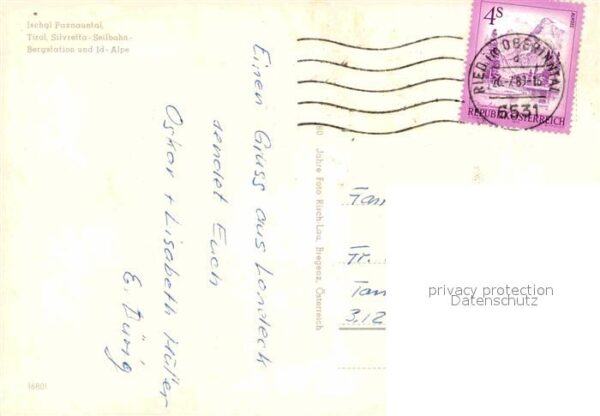 Ischgl Paznauntal,
Tirol, Silvretta-Seilbahn-
Bergstation und Id-Alpe
4S
RIED im OBERINNTAL
6531
REPUBLIK ÖSTERREICH
Einen Gruss aus Landeck
sendet Euch
Oskar + Lisabeth Müller
E. Dürig
80 Jahre Foto Risch-Lau, Bregenz, Österreich
Fam
Fr.
Tan
3.12
privacy protection
Datenschutz
16801